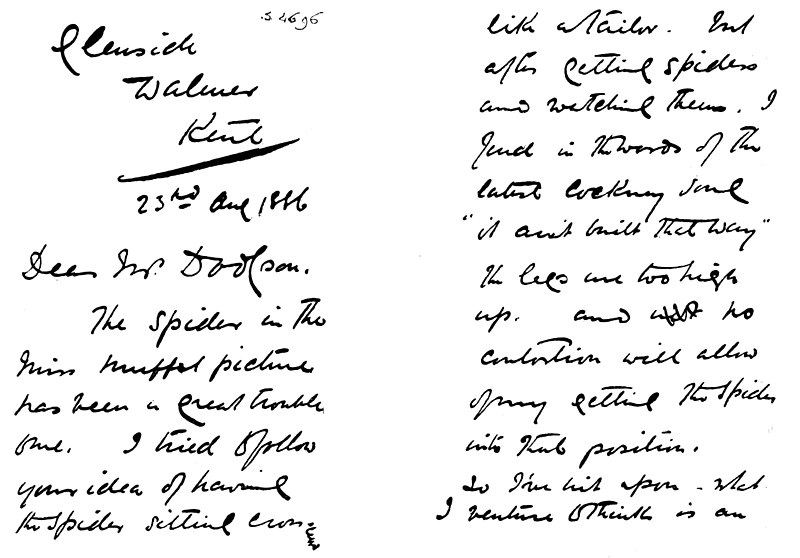 Glenside
Walmer
Kent
23rd Aug 1886
Dear Mr. Dodgson.
The spider in the
Miss Muffet picture
has been a great trouble
one. I tried to follow
your idea of having
the spider sitting cross=
like a tailor. But
after getting spiders
and watching them, I
find in the words of the
latest Cockney song
"it ain't built that way"
the legs are too high
up. and no
contortion will allow
of my getting the spider
into that position.
So I've hit upon - what
I venture to think is an